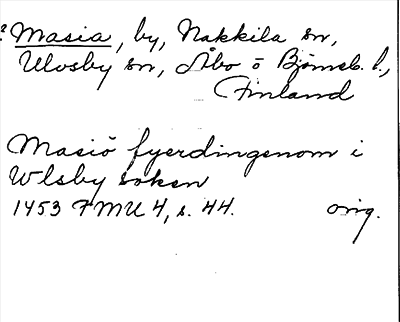 ? Masia, by, Nakkila sn,
Ulvsby sn, Åbo o Björneb. l.,
Finland
Masiö fyerdingenom i
Wlsby soken
1453 FMU 4, s. 44. orig.